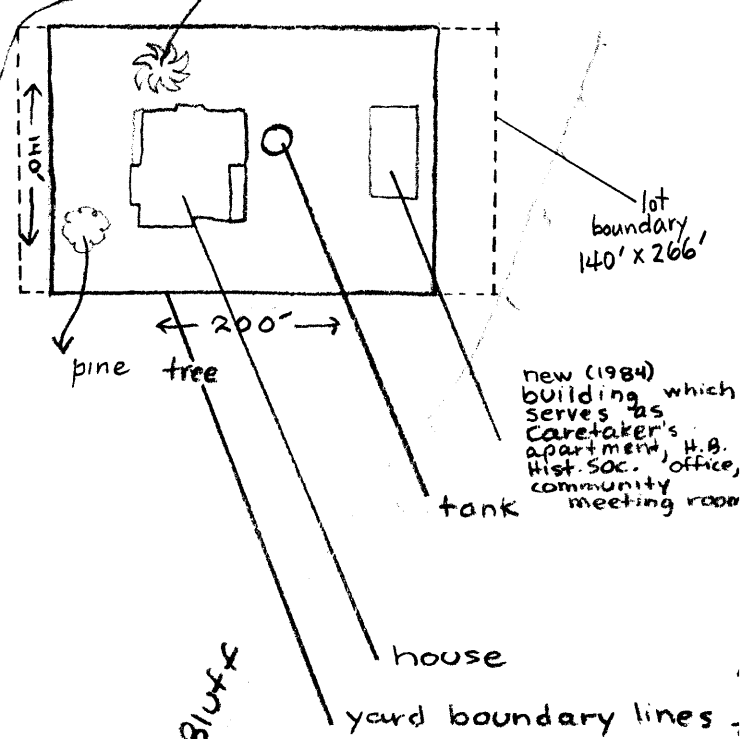 140'
lot
boundary
140' x 266'
200'
pine tree
new (1984)
building which
serves as
caretaker's
apartment, H.B.
Hist. Soc. office,
community
meeting room
tank
house
Bluff
yard boundary lines